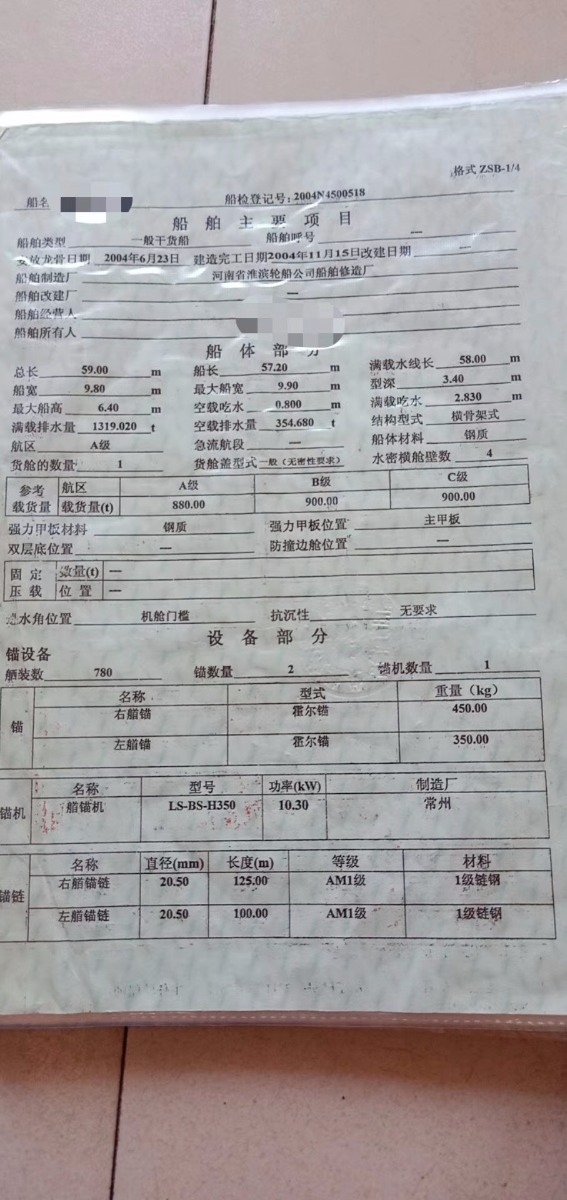 格式 ZSB-1/4
船名 船检登记号: 2004N4500518
船舶主要项目
船舶类型 一般干货船 船舶呼号 —
安放龙骨日期 2004年6月23日 建造完工日期2004年11月15日 改建日期 —
船舶制造厂 河南省淮滨轮船公司船舶修造厂
船舶改建厂 —
船舶经营人
船舶所有人
船体部分
总长 59.00 m 船长 57.20 m 满载水线长 58.00 m
船宽 9.80 m 最大船宽 9.90 m 型深 3.40 m
最大船高 6.40 m 空载吃水 0.800 m 满载吃水 2.830 m
满载排水量 1319.020 t 空载排水量 354.680 t 结构型式 横骨架式
航区 A级 急流航段 — 船体材料 钢质
货舱的数量 1 货舱盖型式 一般（无密性要求） 水密横舱壁数 4
参考载货量 航区 A级 B级 C级
载货量(t) 880.00 900.00 900.00
强力甲板材料 钢质 强力甲板位置 主甲板
双层底位置 — 防撞边舱位置 —
固定压载 数量(t) —
位置 —
进水角位置 机舱门槛 抗沉性 无要求
设备部分
锚设备
舾装数 780 锚数量 2 锚机数量 1
锚 名称 型式 重量（kg）
右艏锚 霍尔锚 450.00
左艏锚 霍尔锚 350.00
锚机 名称 型号 功率(kW) 制造厂
艏锚机 LS-BS-H350 10.30 常州
锚链 名称 直径(mm) 长度(m) 等级 材料
右艏锚链 20.50 125.00 AM1级 1级链钢
左艏锚链 20.50 100.00 AM1级 1级链钢